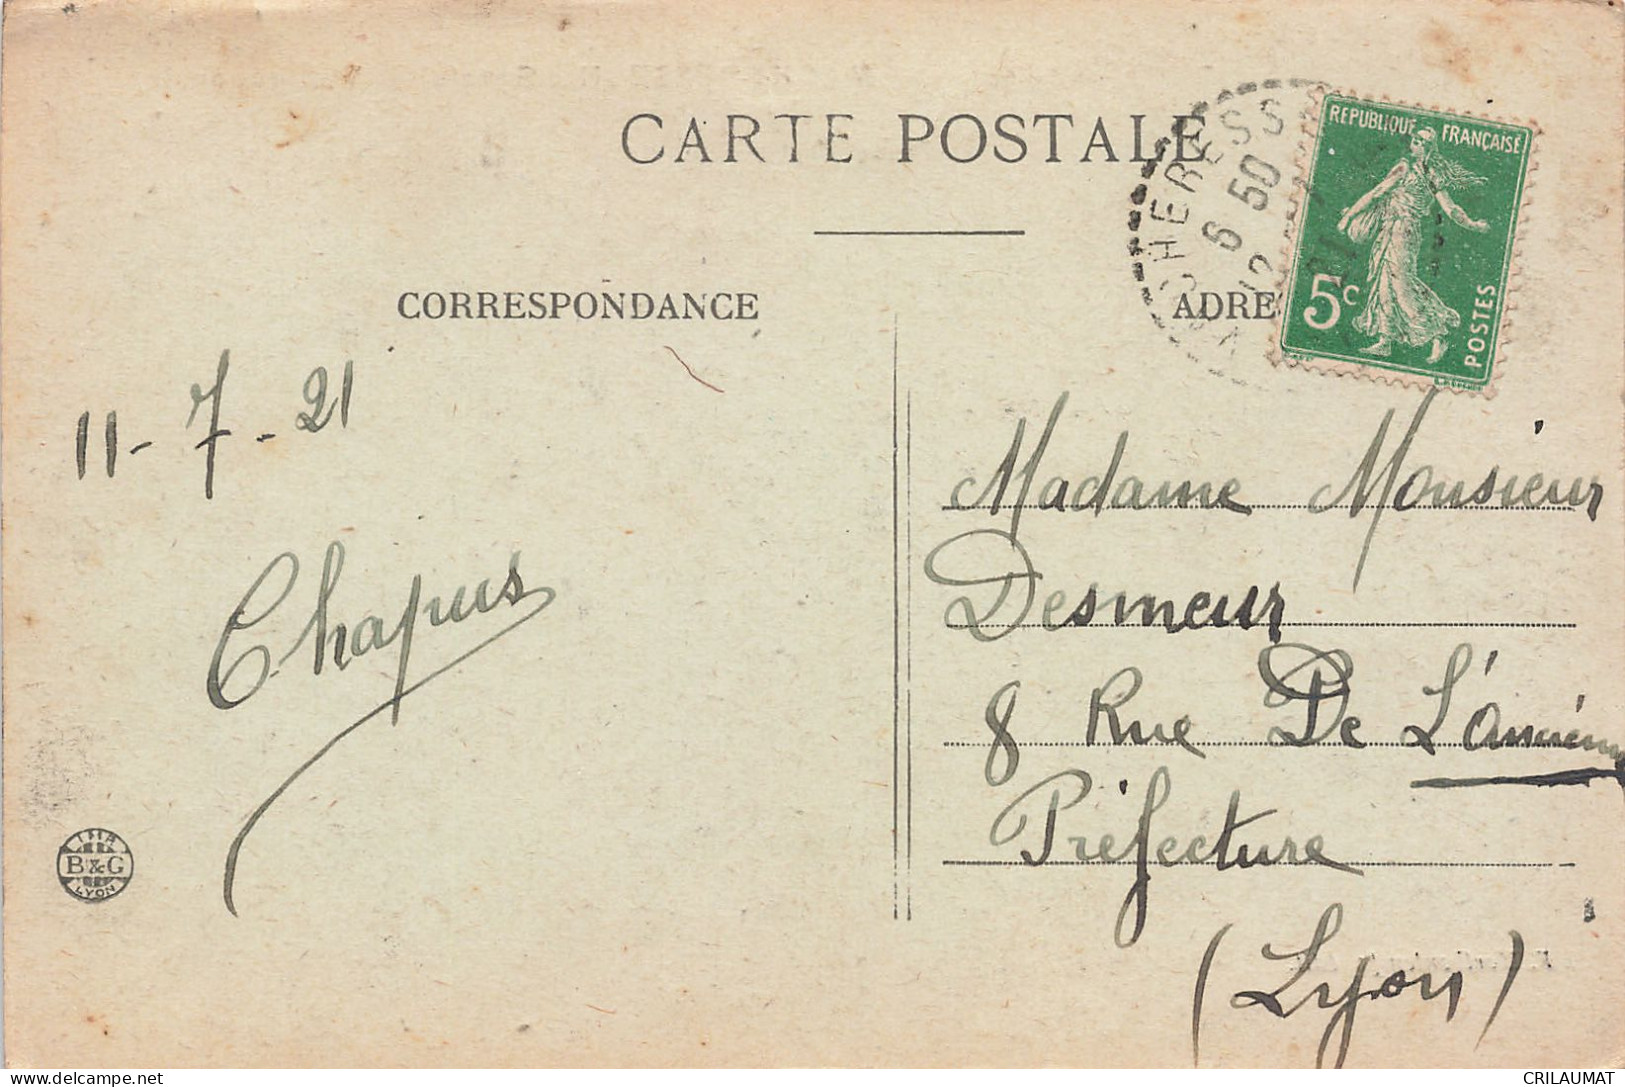 CARTE POSTALE
CORRESPONDANCE
ADRE
REPUBLIQUE FRANÇAISE
5c
POSTES
6 50
12
21
11-7-21
Chapus
Madame Monsieur
Desmeur
8 Rue De L'Ancienne
Préfecture
(Lyon)
B&G
LYON
delcampe.net
CRILAUMAT